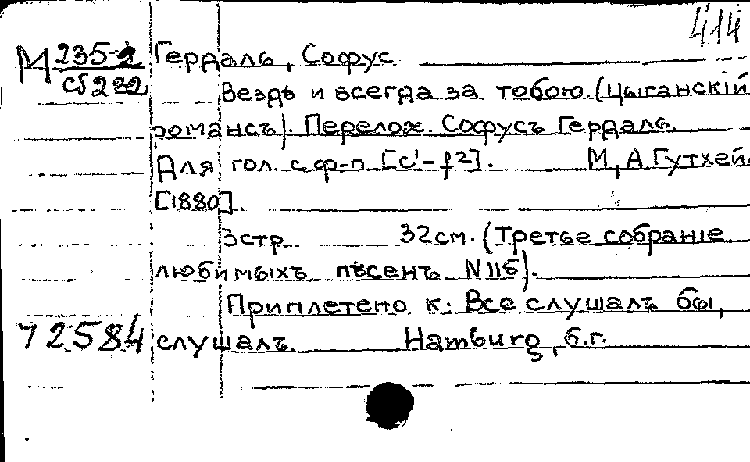 414
М 235-2 Гердаль, Софус
сб 232 Вездѣ и всегда за тобою (Цыганскій
романсъ). Перелож. Софусъ Гердаль.
Для гол. с ф-п. [c'-f²]. М, А. Гутхей.
[1880].
3стр. 32см. (Третье собраніе
любимыхъ пѣсенъ N 115).
Приплетено к: Все слушалъ бы,
72584 слушалъ. Hamburg, б.г.